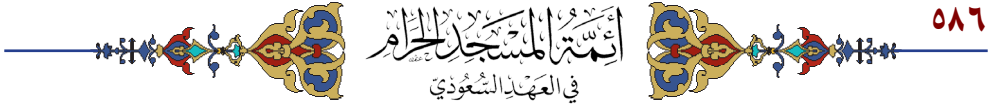 ٥٨٦
أَئِمَّةُ المَسْجِدِ الحَرَامِ
في العَهْدِ السُّعُوديّ